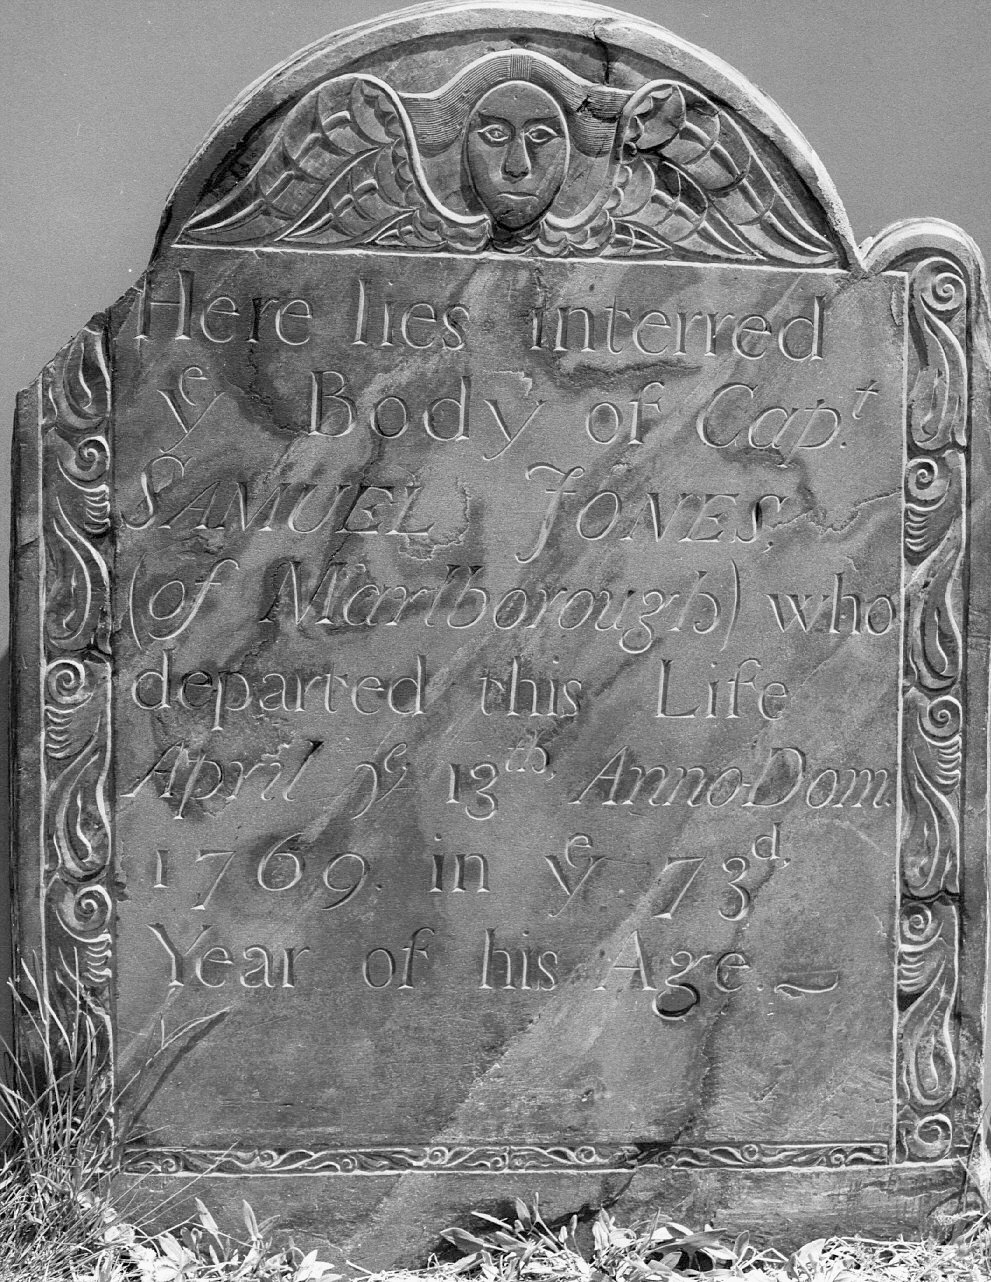 Here lies interred
yᵉ Body of Capᵗ.
SAMUEL JONES,
(of Marlborough) who
departed this Life
April yᵉ 13ᵗʰ, Anno-Dom
1769. in yᵉ 73ᵈ.
Year of his Age. ~